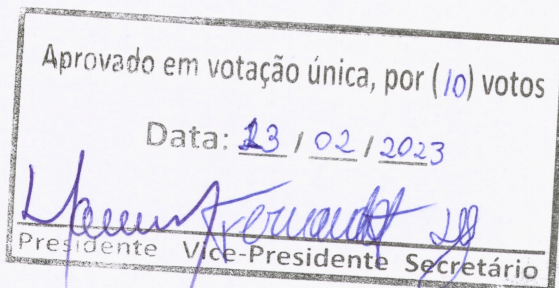 Aprovado em votação única, por (10) votos
Data: 23 / 02 / 2023
Presidente Vice-Presidente Secretário